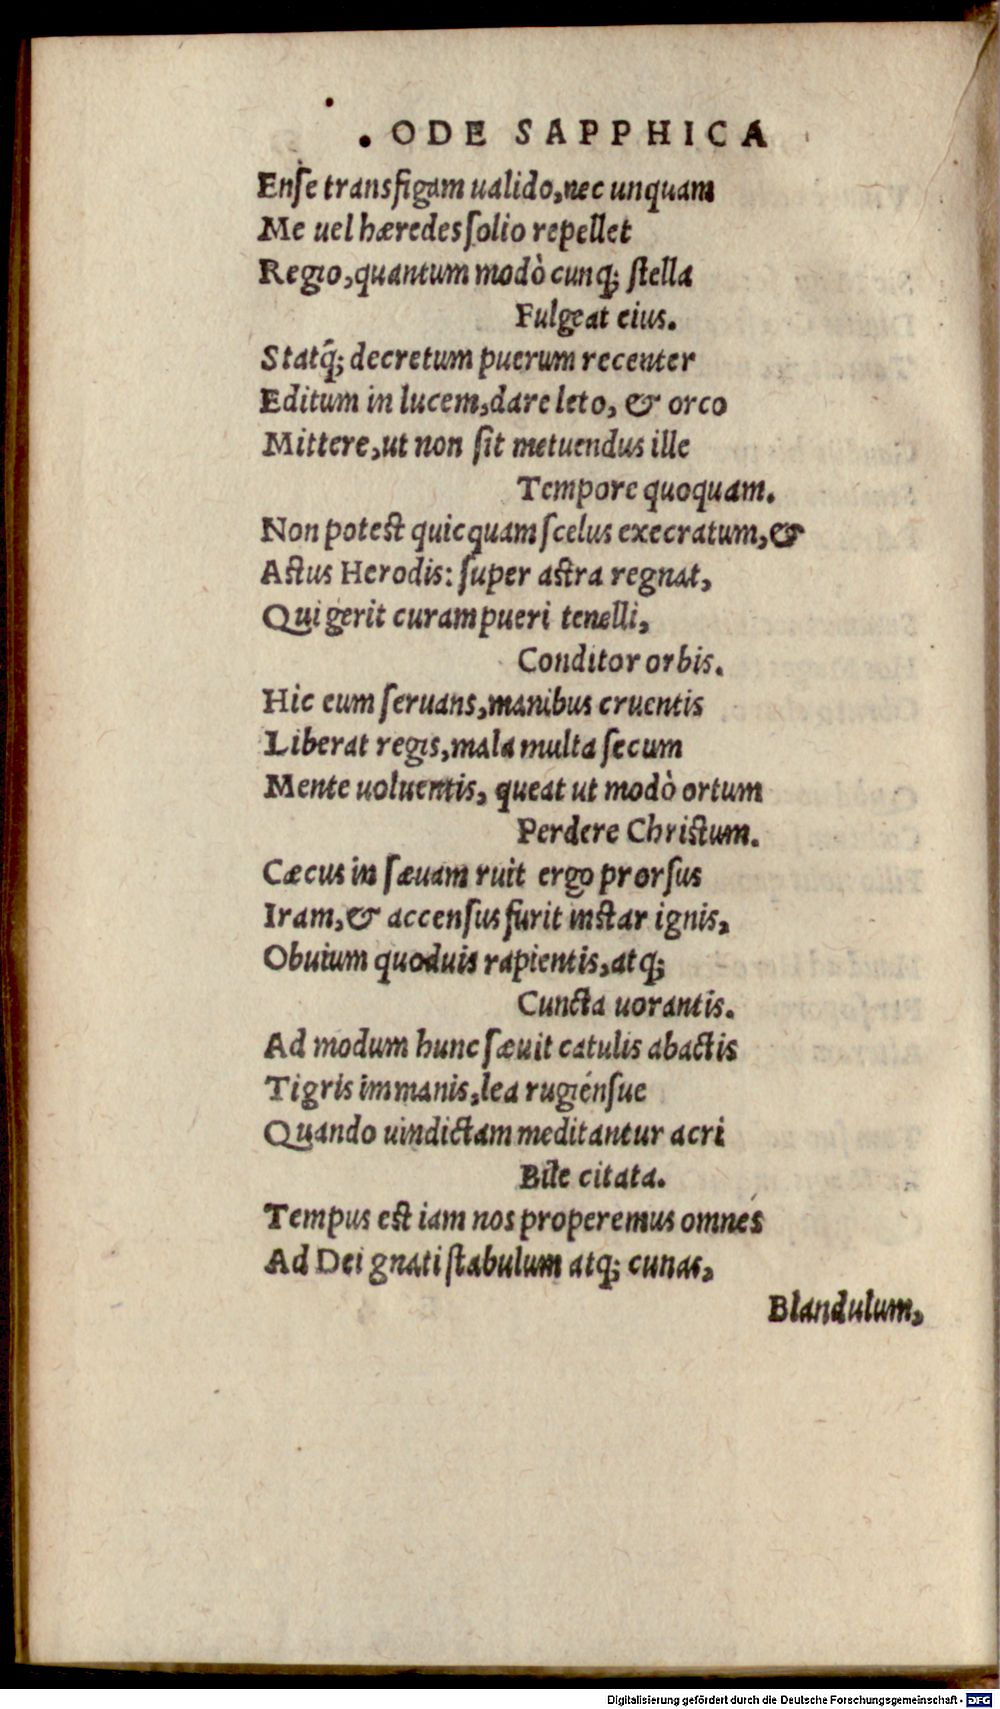 . ODE SAPPHICA
Enſe transfigam ualido, nec unquam
Me uel hæredes ſolio repellet
Regio, quantum modò cunq; ſtella
Fulgeat eius.
Statq́; decretum puerum recenter
Editum in lucem, dare leto, & orco
Mittere, ut non ſit metuendus ille
Tempore quoquam.
Non poteſt quicquam ſcelus execratum, &
Aſtus Herodis: ſuper aſtra regnat,
Qui gerit curam pueri tenelli,
Conditor orbis.
Hic eum ſeruans, manibus cruentis
Liberat regis, mala multa ſecum
Mente uoluentis, queat ut modò ortum
Perdere Chriſtum.
Cæcus in ſæuam ruit ergo prorſus
Iram, & accenſus furit inſtar ignis,
Obuium quoduis rapientis, atq;
Cuncta uorantis.
Ad modum hunc ſæuit catulis abactis
Tigris immanis, lea rugiénſue
Quando uindictam meditantur acri
Bile citata.
Tempus eſt iam nos properemus omnes
Ad Dei gnati ſtabulum atq; cunas,
Blandulum,
Digitalisierung gefördert durch die Deutsche Forschungsgemeinschaft - DFG